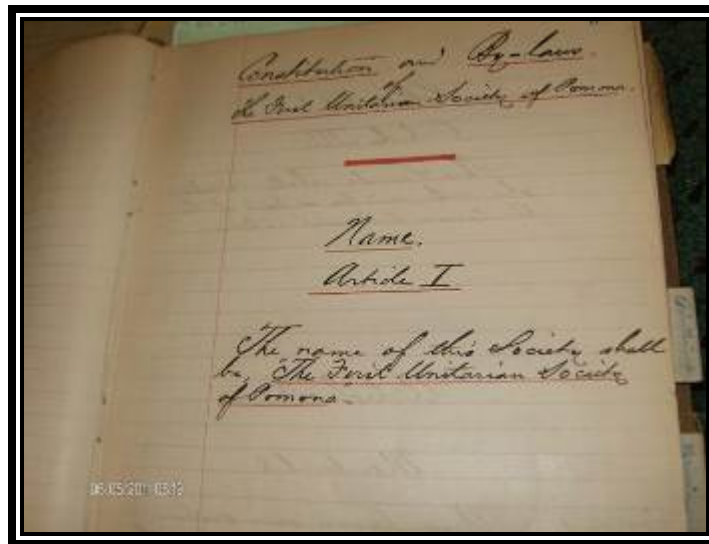 Constitution and By-laws.
of
the First Unitarian Society of Pomona.
Name.
Article I
The name of this Society shall
be, "The First Unitarian Society
of Pomona."